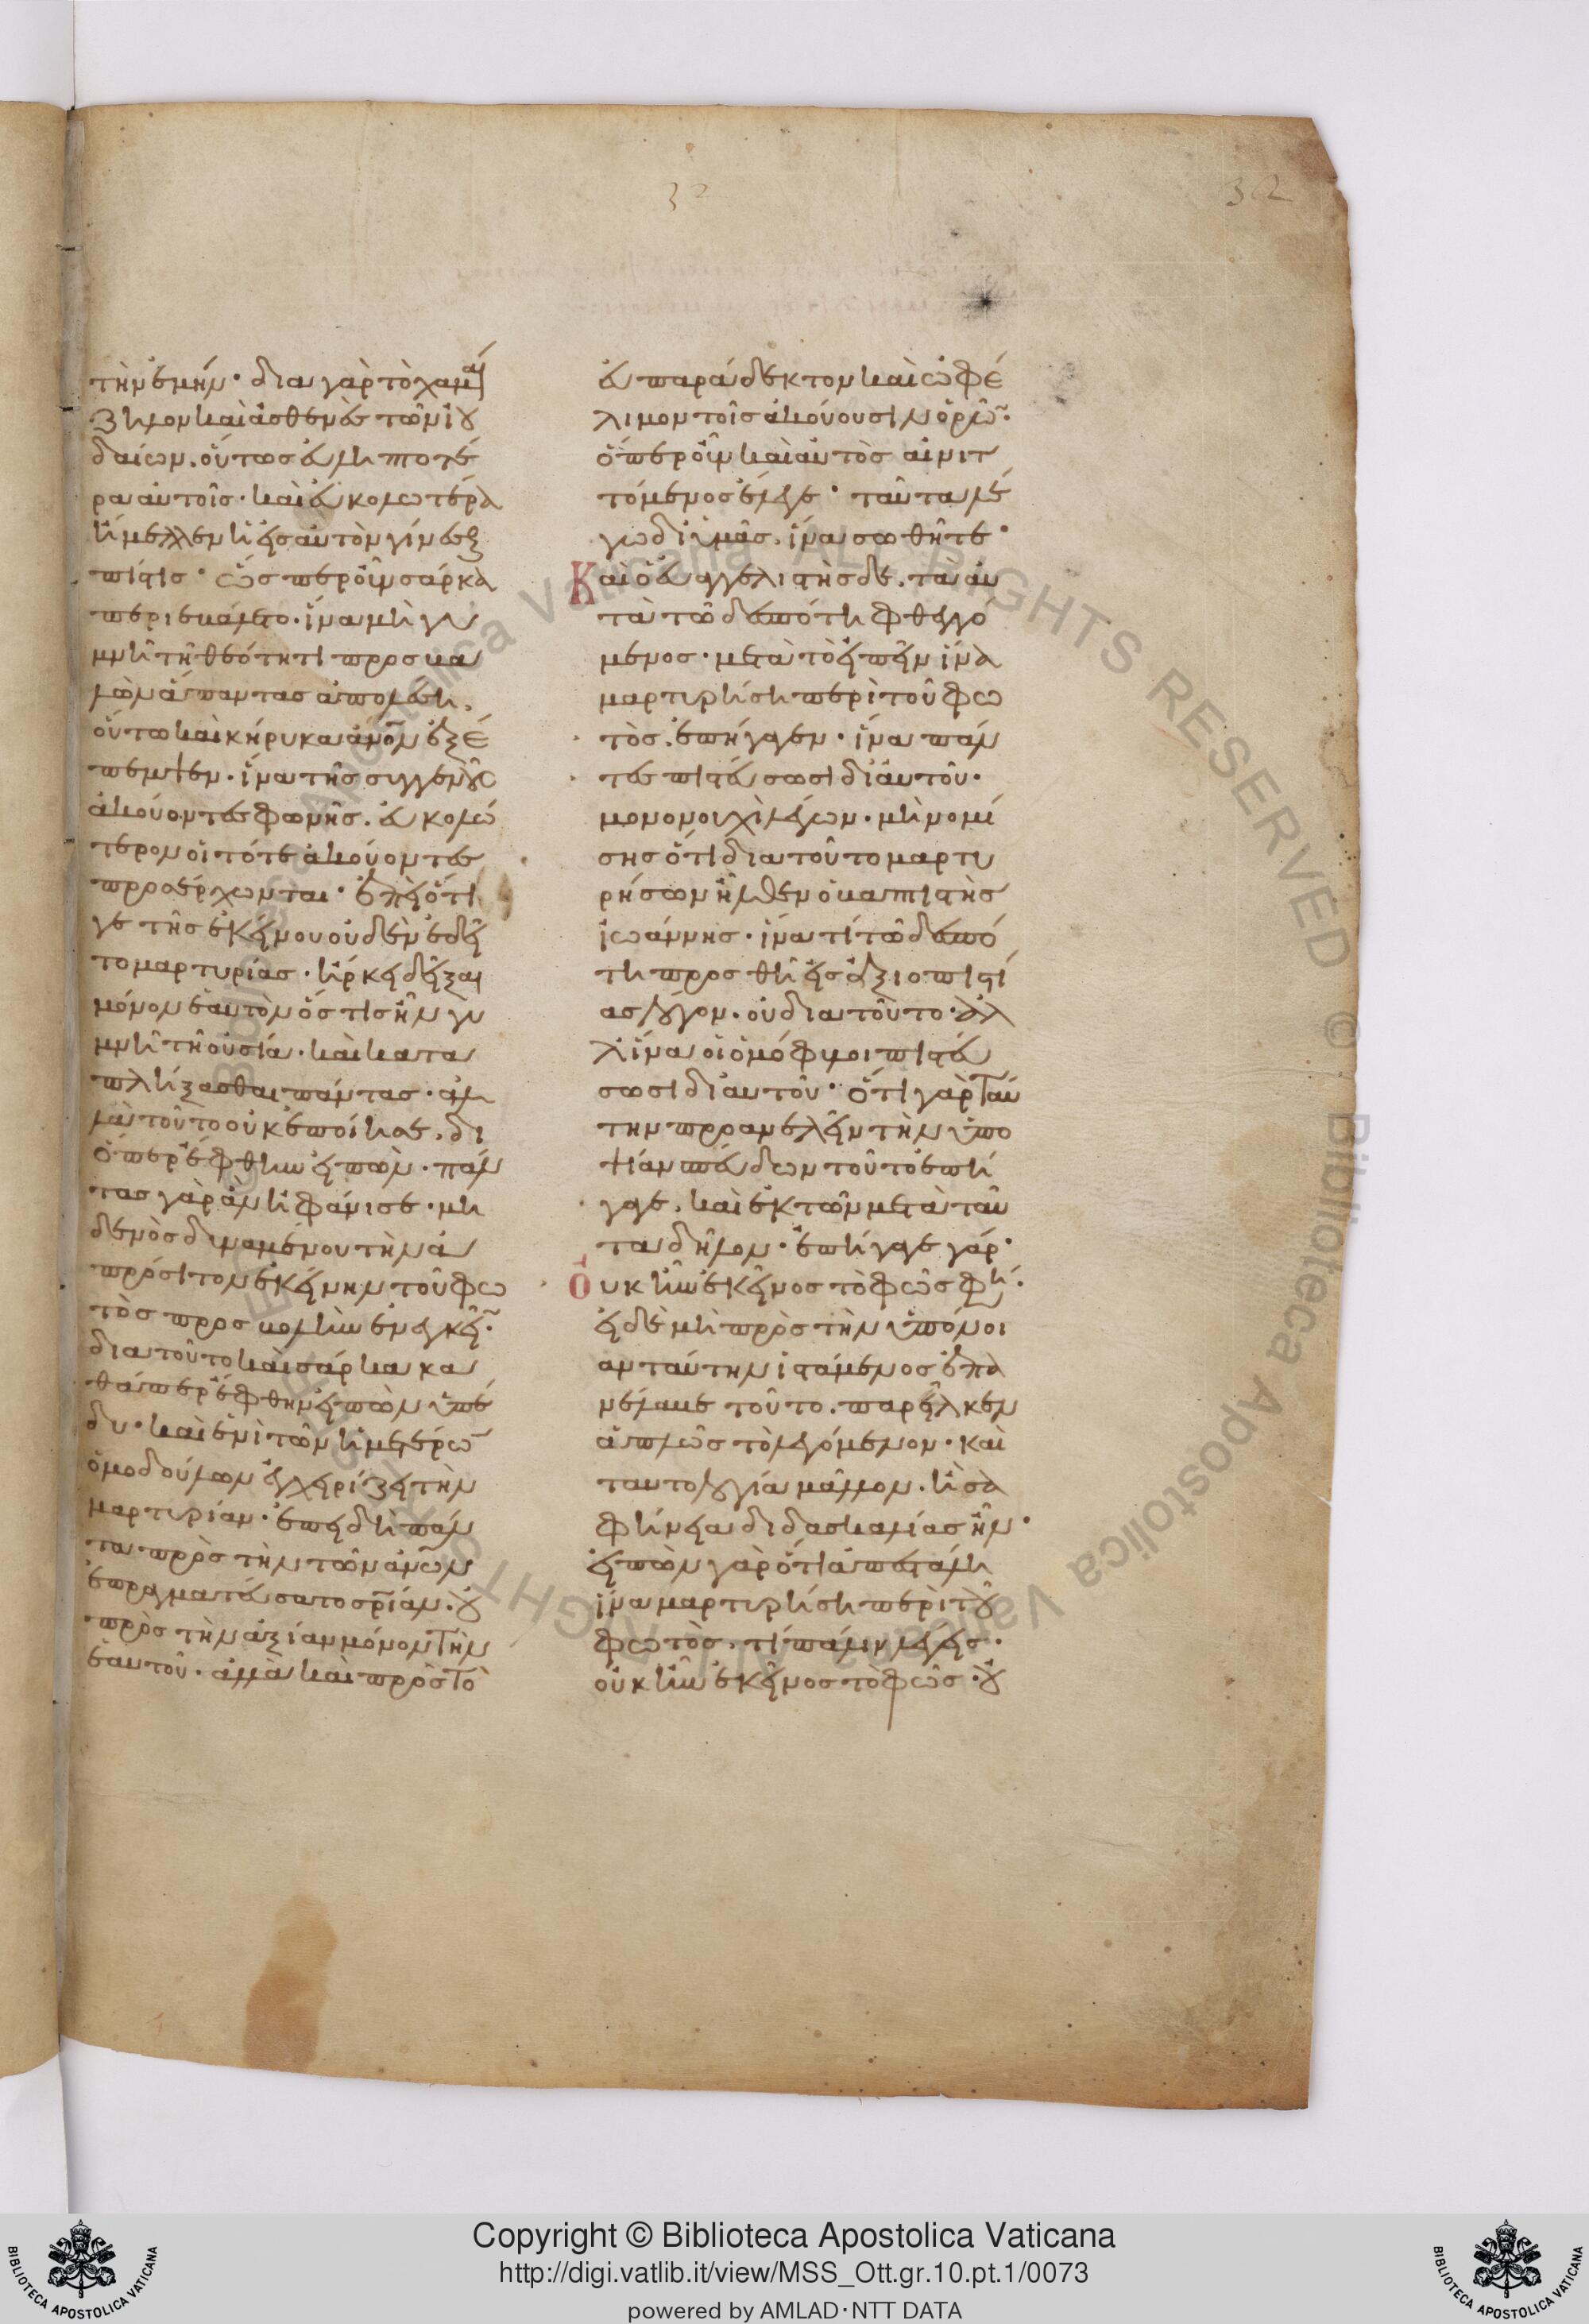 32
32
τὴν ἐμήν· δια γὰρ τὸ χαμαί
ζηλον καὶ ἀσθενὲς τῶν ἰου
δαίων. οὕτως εὐληπτοτέ
ρα αὐτοῖς· καὶ εὐκολωτέρα
ἤμελλεν ἡ εἰς αὐτὸν γίνεσθαι
πίστις· ὥσπερ οὖν σάρκα
περιεβάλετο. ἵνα μὴ γυ
μνῆ τῆ θεότητι προσβα
λὼν ἅπαντας ἀπολέση.
οὕτω καὶ κήρυκα ἄνον ἐξέ
πεμψεν. ἵνα τῆς συγγενοῦς
ἀκούοντες φωνῆς. εὐκολώ
τερον οἱ τότε ἀκούοντες
προσέρχωνται· ἐπεὶ ὅτι
γε τῆς ἐκείνου οὐδὲν ἐδεῖ
το μαρτυρίας. ἤρκει δεῖξαι
μόνον ἑαυτὸν ὅστις ἦν γυ
μνῆ τῆ οὐσία. καὶ κατα
πλήξασθαι πάντας. ἀλ
λὰ τοῦτο οὐκ ἐποίησε. δι
ὅπερ ἔφθην εἰπὼν. πάν
τας γὰρ ἂν ἠφάνισε. μη
δενὸς δυναμένου τὴν ἀ
πρόσιτον ἐκείνην τοῦ φω
τὸς προσβολὴν ἐνεγκεῖν.
δια τοῦτο καὶ σάρκα κα
θάπερ ἔφθην εἰπὼν ὑπέ
δυ. καὶ ἑνὶ τῶν ἡμετέρων
ὁμοδούλων ἐγχειρίζει τὴν
μαρτυρίαν. ἐπειδὴ πάν
τα πρὸς τὴν τῶν ἀνων
ἐπραγματεύσατο σρίαν. οὐ
πρὸς τὴν ἀξίαν μόνον τὴν
ἑαυτοῦ. ἀλλὰ καὶ πρὸς τὸ
εὐπαράδεκτον καὶ ὠφέ
λιμον τοῖς ἀκούουσιν ὁρῶν.
ὅπερ οὖν καὶ αὐτὸς αἰνιτ
τόμενος ἔλεγε· ταῦτα λέ
γω δι' ὑμᾶς. ἵνα σωθῆτε·
Καὶ ὁ εὐαγγελιστὴς δε. τὰ αυ
τὰ τῶ δεσπότη φθεγγό
μενος. μετὰ τὸ εἰπεῖν ἵνα
μαρτυρήση περὶ τοῦ φω
τὸς. ἐπήγαγεν. ἵνα πάν
τες πιστεύσωσι δι' αὐτοῦ.
μονονουχὶ λέγων. μὴ νομί
σης ὅτι δια τοῦτο μαρτυ
ρήσων ἦλθεν ὁ βαπτιστὴς
ἰωάννης. ἵνα τί τῶ δεσπό
τη προσθῆ εἰς ἀξιοπιστί
ας λόγον. οὐ δια τοῦτο. ἀλ
λ' ἵνα οἱ ὁμόφυλοι πιστεύ
σωσι δι' αὐτοῦ· ὅτι γὰρ ταύ
την προανελεῖν τὴν ὑπο
ψίαν σπεύδων τοῦτο ἐπή
γαγε. καὶ ἐκ τῶν μετὰ ταῦ
τα δῆλον. ἐπήγαγε γάρ·
Οὐκ ἦν ἐκεῖνος τὸ φῶς φη.
εἰ δὲ μὴ πρὸς τὴν ὑπόνοι
αν ταύτην ἱστάμενος ἐπα
νέλαβε τοῦτο. παρεῖλκεν
ἁπλῶς τὸ λεγόμενον. καὶ
ταυτολογία μᾶλλον. ἢ σα
φήνεια διδασκαλίας ἦν·
εἰπὼν γὰρ ὅτι ἀπεστάλη
ἵνα μαρτυρήση περὶ τοῦ
φωτὸς. τί πάλιν λέγεις.
οὐκ ἦν ἐκεῖνος τὸ φῶς. οὐ
Copyright © Biblioteca Apostolica Vaticana
http://digi.vatlib.it/view/MSS_Ott.gr.10.pt.1/0073
powered by AMLAD·NTT DATA
BIBLIOTECA APOSTOLICA VATICANA
BIBLIOTECA APOSTOLICA VATICANA